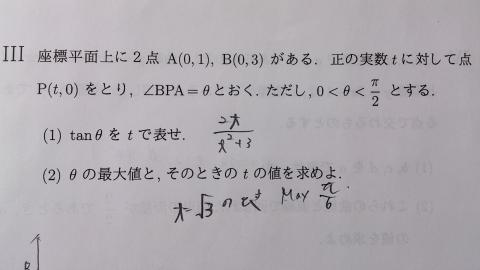 III 座標平面上に2点 A(0,1), B(0,3) がある. 正の実数 t に対して点
P(t,0) をとり, ∠BPA = θ とおく. ただし, 0 < θ < π/2 とする.
(1) tanθ を t で表せ. 2t/(t²+3)
(2) θ の最大値と, そのときの t の値を求めよ.
t=√3 のとき Max π/6.